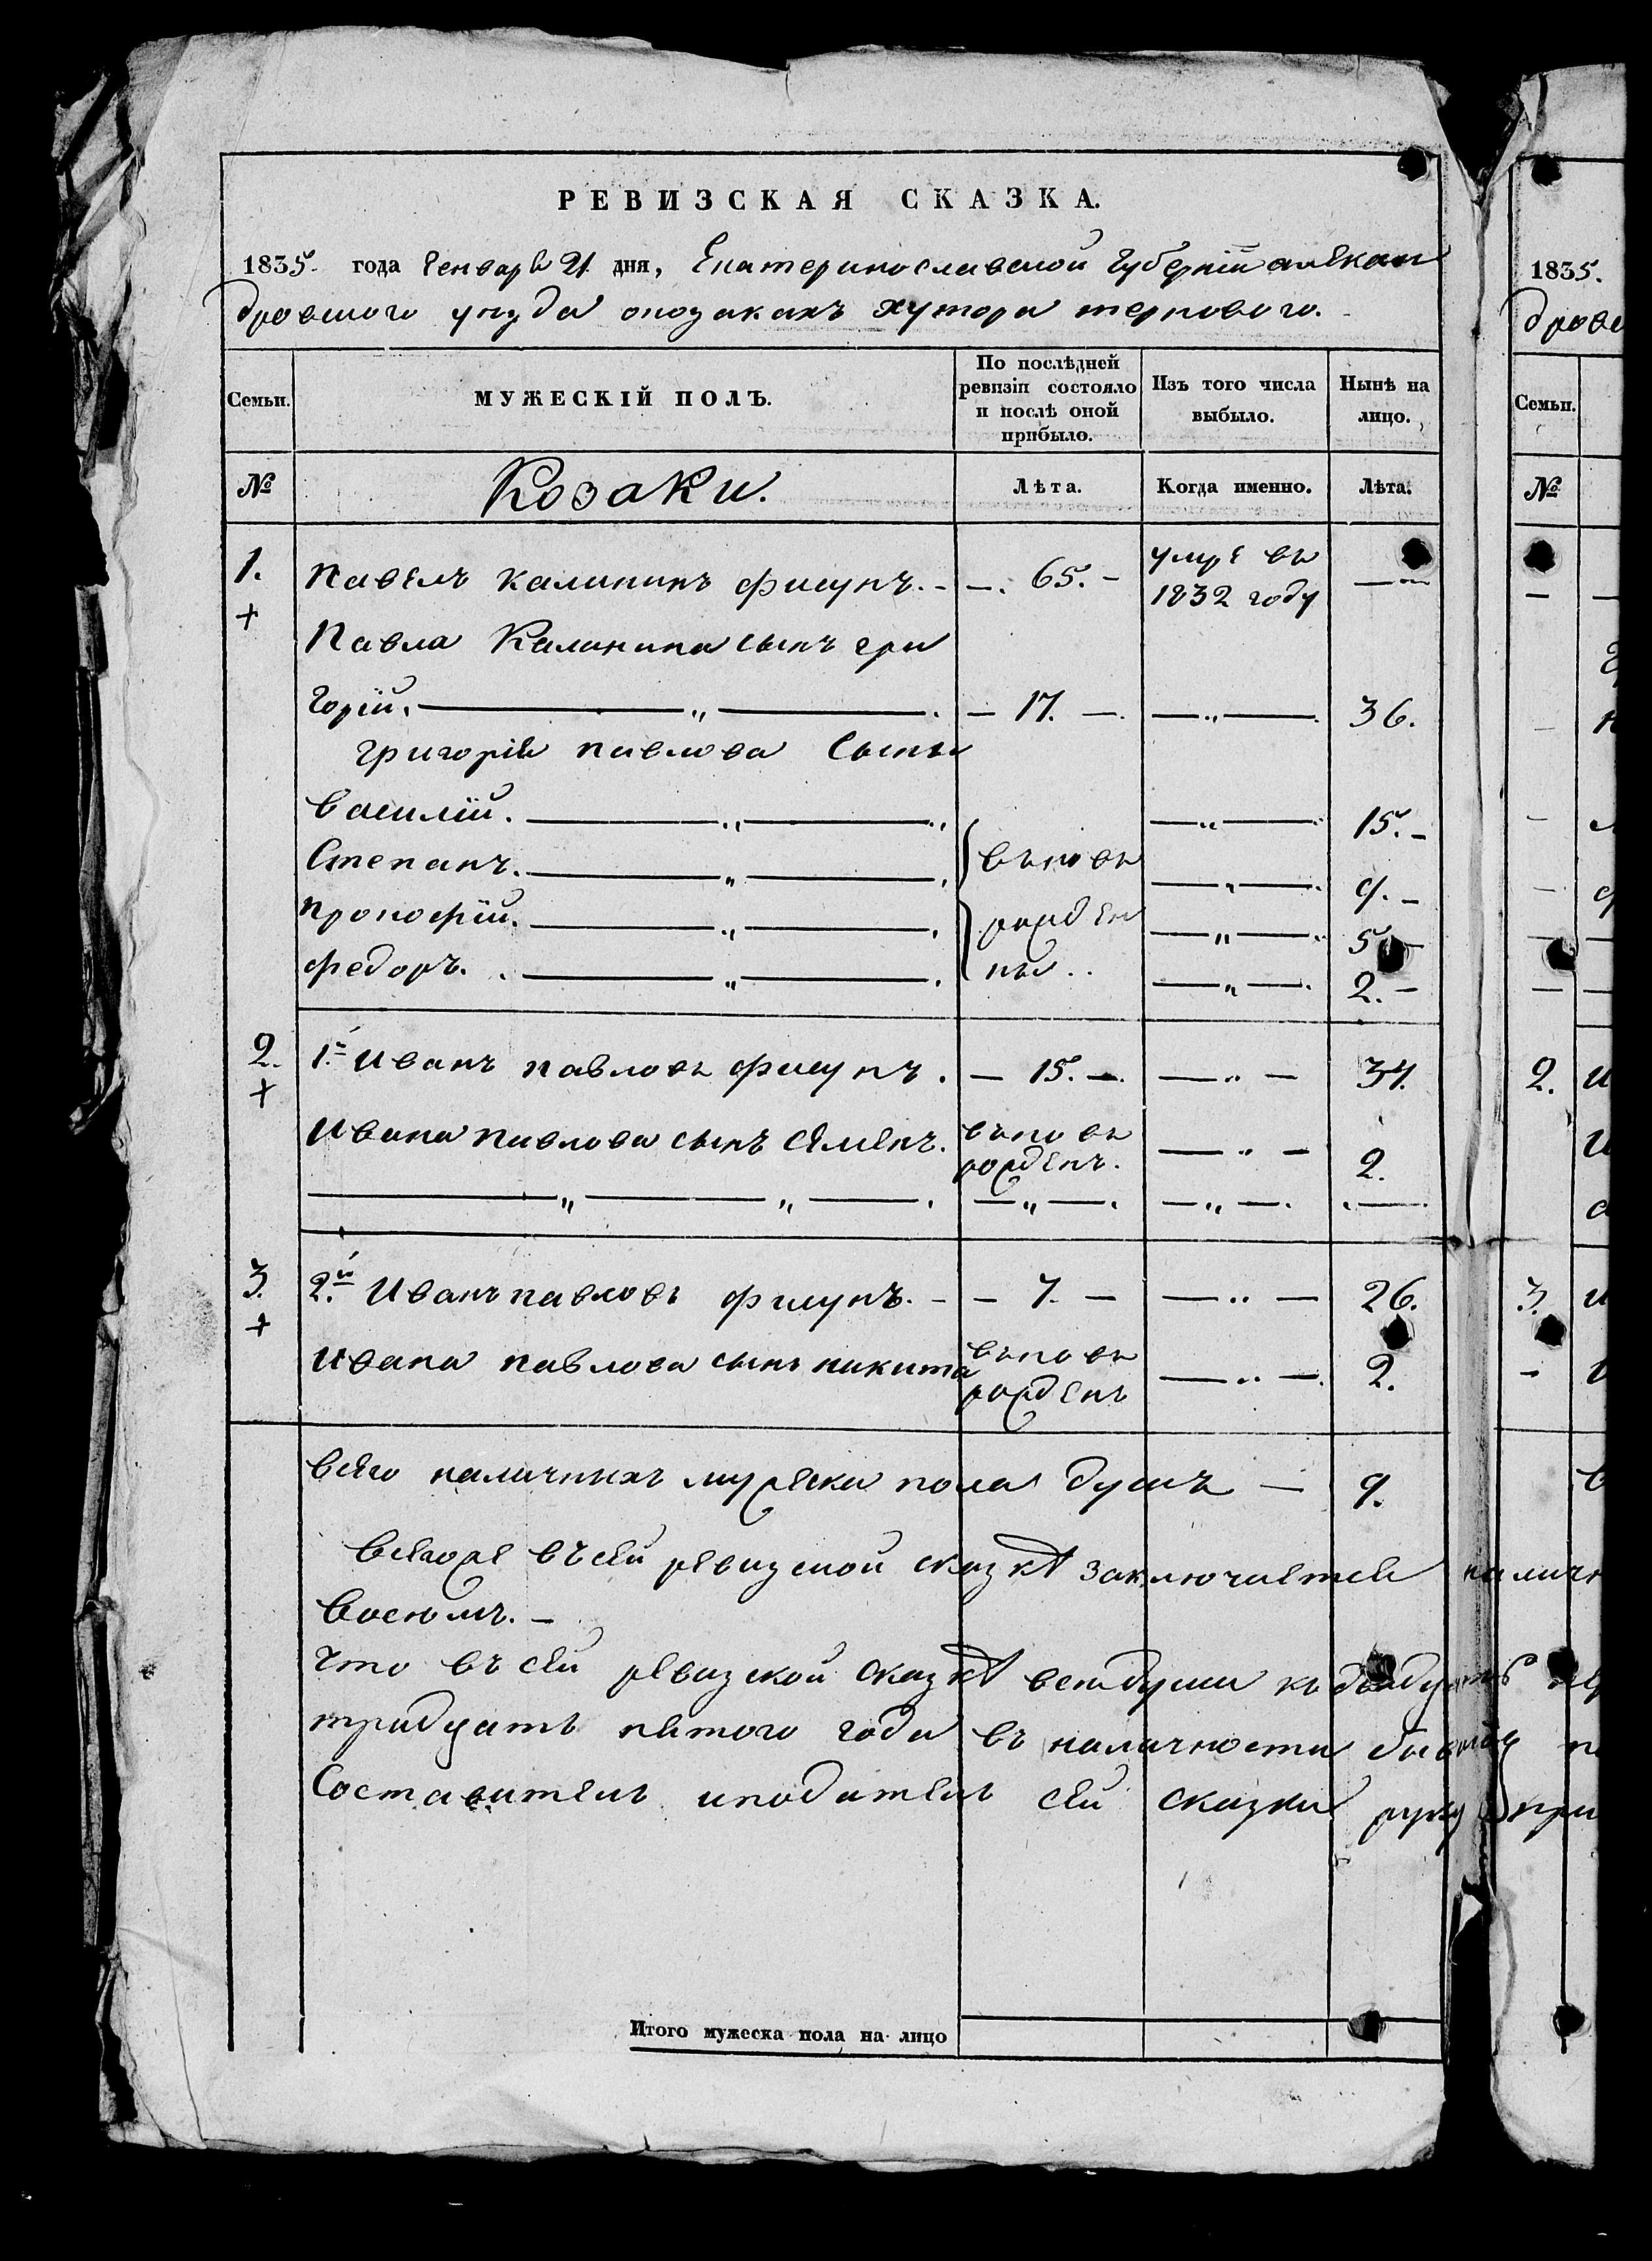 РЕВИЗСКАЯ СКАЗКА.
1835. года Генваря 21 дня, Екатеринославской Губерніи алексан
дровского уезда окозакахъ хутора тернового.
Семьи.
МУЖЕСКІЙ ПОЛЪ.
По послѣдней ревизіи состояло и послѣ оной прибыло.
Изъ того числа выбыло.
Нынѣ на лицо.
№
Козаки.
Лѣта.
Когда именно.
Лѣта.
1. Павелъ Калининъ фисунъ. - — . 65. - умре въ 1832 году —"—
+
Павла Калинина сынъ гри
горій. —"— . — 17. — . —"— . 36.
григорія павлова Сыны
Василій. —"— . —"— . 15. -
Степанъ. —"— . вновь —"— . 9. -
прокофій. —"— . рожден —"— . 5 -
федоръ. . —"— . ныя .. —"— . 2. -
2. 1й Иванъ павловъ фисунъ. — 15. — . —"— 34.
+
Ивана павлова сынъ семенъ. вновь рожденъ. —"— 2.
—"—"— . —"— . —"— . . — .
3. 2й Иванъ павловъ фисунъ. - — 7. — —"— 26.
+
Ивана павлова сынъ никита вновь рожденъ —"— . 2.
всего наличныхъ мужеска пола душъ — 9.
Всегоже въсей ревизской сказкѣ заключается наличн
Восемъ. —
Что въ сей ревизской сказкѣ все души
тридцать пятого года въ наличности
Составитель иподатель сей сказки руку при
Итого мужеска пола на лицо
1835.
дровс
Семьи.
№
2.
3.